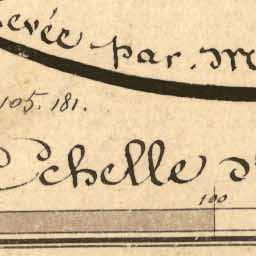 evée par M
105. 181.
Echelle d
100